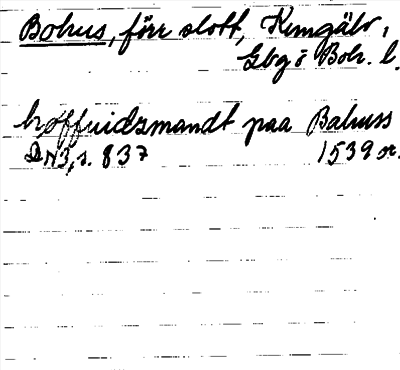 Bohus, förr slott, Kungälv,
Gbg o Boh. l.
høffuidzmandt paa Bahuss
DN3, s. 837 1539 or.